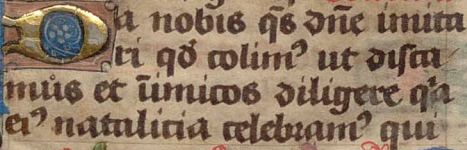 Da nobis qs̄ dn̄e imita
ri qđ colimꝰ ut disca
mus et īnimicos diligere qꝛa
eiꝰ natalicia celebramꝰ qui